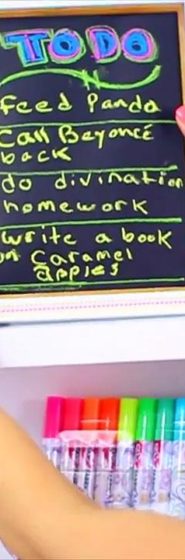 TO DO
Feed Panda
Call Beyoncé
back
do divination
homework
write a book
on Caramel
apples